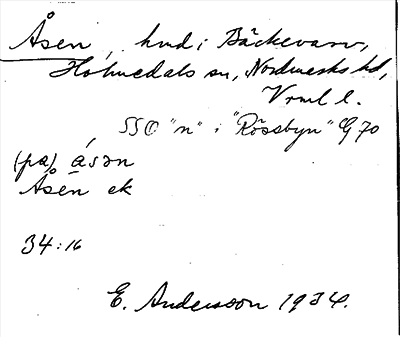 Åsen, hmd i Bäckevarv,
Holmedals sn, Nordmarks hd,
Vrml l.
SSO "n" i "Rössbyn" G 70
(på) ǻsən
Åsen ek
34:16
E. Andersson 1934.